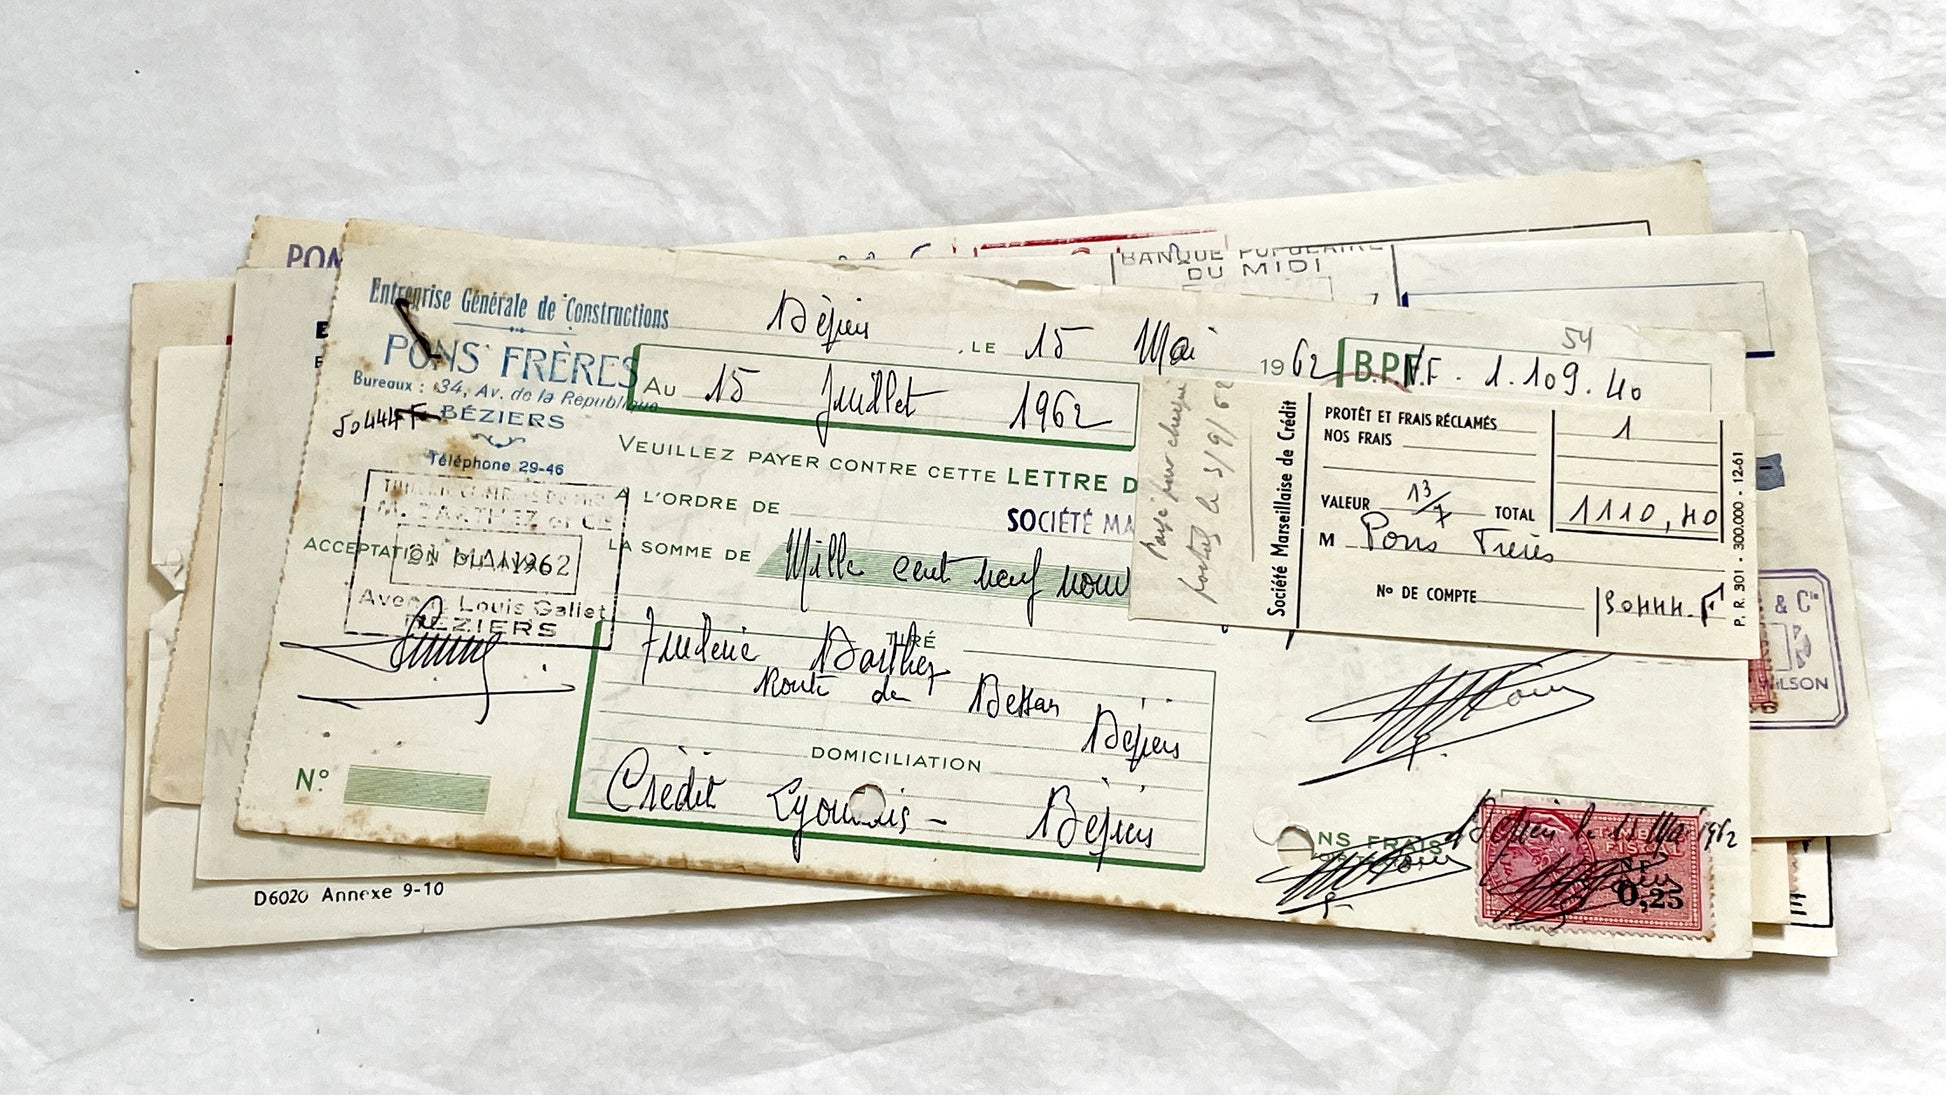 BANQUE POPULAIRE
DU MIDI
Entreprise Générale de Constructions
PONS FRÈRES
Bureaux : 34, Av. de la République
BÉZIERS
50444 F
Téléphone 29-46
Béziers, LE 15 Mai 1962
B.P.F. 1.109.40
54
AU 15 Juillet 1962
VEUILLEZ PAYER CONTRE CETTE LETTRE D
A L'ORDRE DE
SOCIÉTÉ MA
LA SOMME DE Mille cent neuf nouv
M. BARTHEZ et Cie
ACCEPTATION
21 MAI 1962
Louis Galliet
BÉZIERS
TIRÉ
Frédéric Barthez
Route de Bessan
Béziers
DOMICILIATION
Crédit Lyonnais - Béziers
N°
Payé par chèque
postal le 3/9/62
Société Marseillaise de Crédit
PROTÊT ET FRAIS RÉCLAMÉS 1
NOS FRAIS
VALEUR 13/7 TOTAL 1110,40
M Pons Frères
N° DE COMPTE 50444.F
P. R. 301 - 300.000 - 12-61
& Cie
WILSON
NS FRAIS
Béziers le 15 Mai 1962
FISCAL
NF
0,25
D6020 Annexe 9-10